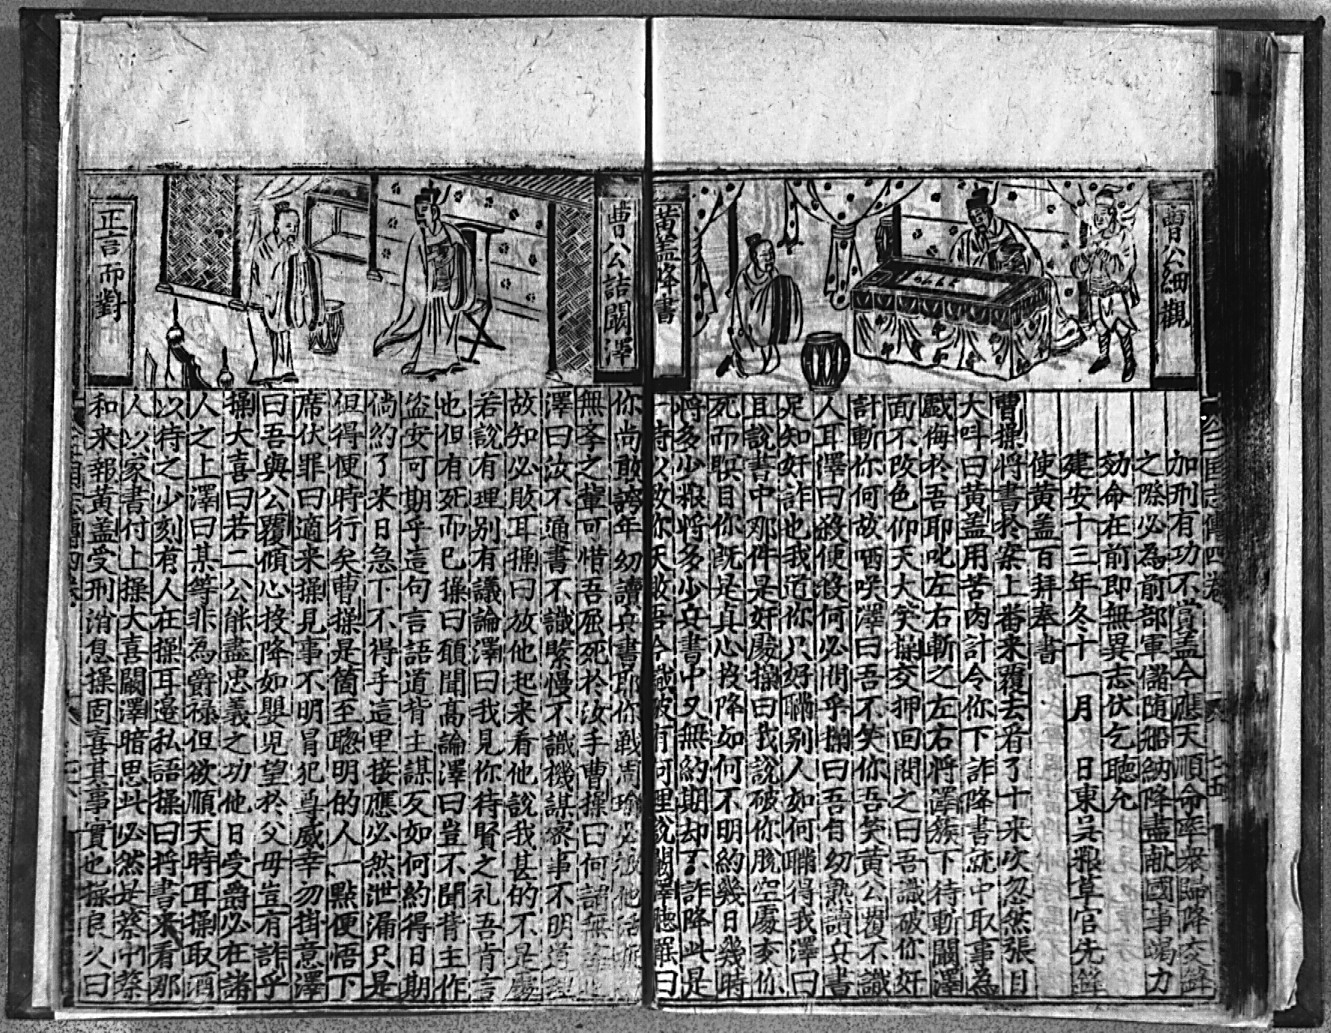 曹公細觀
黃盖降書
加刑有功不賞盖今應天順命率衆歸降交鋒
之際必為前部軍儲随船納降盡献國事竭力
効命在前即無異志伏乞聽允
建安十三年冬十一月 日東吴粮草官先鋒
使黃盖百拜奉書
曹操將書於案上番来覆去看了十来次忽然張目
大呌曰黃盖用苦肉計令你下詐降書就中取事為
戯侮於吾耶叱左右斬之左右將澤簇下待斬闞澤
面不改色仰天大笑操交押回問之曰吾識破你奸
計斬你何故哂笑澤曰吾不笑你吾笑黃公覆不識
人耳澤曰殺便殺何必問乎操曰吾自幼熟讀兵書
足知奸詐也我道你只好瞞别人如何瞞得我澤曰
且說書中那件是奸處操曰我說破你脫空處交你
死而瞑目你既是真心投降如何不明約幾日幾時
將多少粮將多少兵書中又無約期却不詐降此是
闞澤聽罷曰
曹公詰闞澤
正言而對
你尚敢誇年幼讀兵書耶你戦周瑜必被他活捉
無峇之輩可惜吾屈死於汝手曹操曰何謂無
澤曰汝不通書不識緊慢不識機謀察事不明道理
故知必敗耳操曰放他起来看他說我甚的不是處
若說有理别有議論澤曰我見你待賢之礼吾肯言
也但有死而已操曰願聞髙論澤曰豈不聞背主作
盗安可期乎這句言語道背主謀反如何約得日期
倘約了来日急下不得手這里接應必然泄漏只是
但得便時行矣曹操是箇至聦明的人一點便悟下
席伏罪曰適来操見事不明冐犯尊威幸勿掛意澤
曰吾與公覆傾心投降如嬰児望於父母豈有詐乎
操大喜曰若二公能盡忠義之功他日受爵必在諸
人之上澤曰某等非為爵禄但欲順天時耳操取酒
以待之少刻有人在操耳邉私語操曰將書来看那
人以家書付上操大喜闞澤暗思此必然是蔡中蔡
和来報黃盖受刑消息操固喜其事實也操良久曰